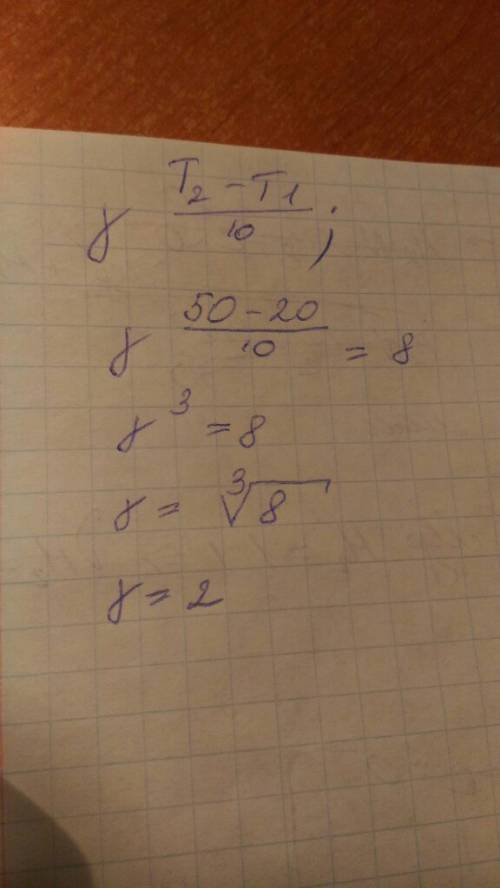 γ^{\frac{T_2 - T_1}{10}};
γ^{\frac{50 - 20}{10}} = 8
γ^3 = 8
γ = \sqrt[3]{8}
γ = 2